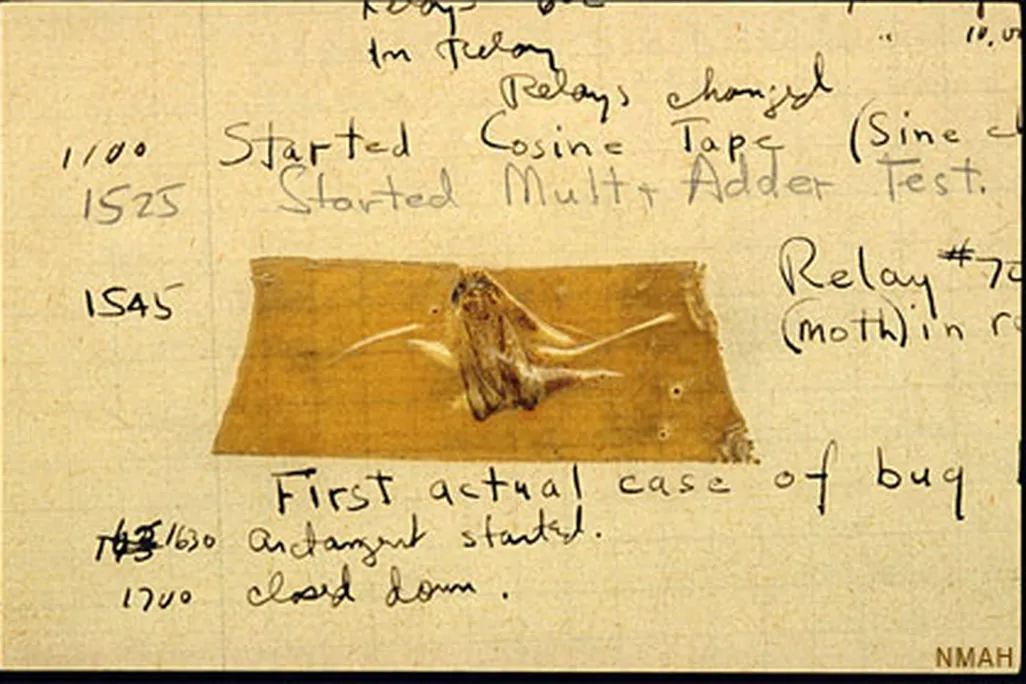 In Relay
" 10,00
Relays changed
1100 Started Cosine Tape (Sine c
1525 Started Mult + Adder Test.
1545 Relay #70
(moth) in r
First actual case of bug
1630 arctangent started.
1700 closed down.
NMAH